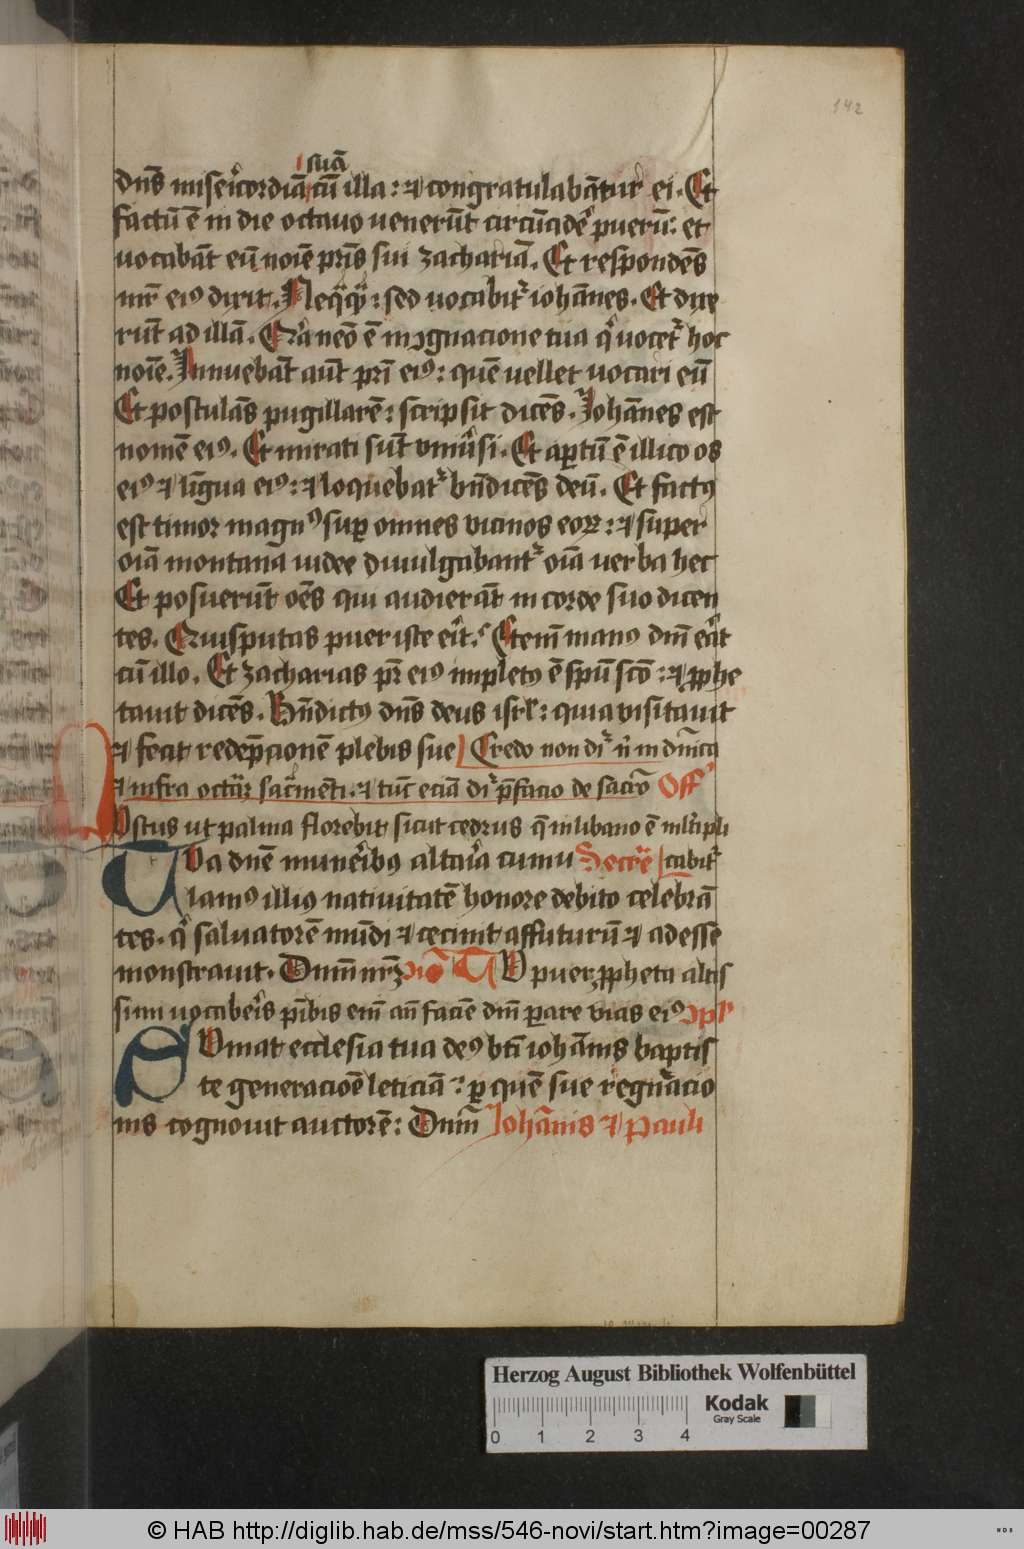 142
suā
dn̄s misericordiā cū illa: ⁊ congratulabātur ei. Et
factū ē in die octauo venerūt circūcidē puerū: et
vocabāt eū noīe pr̄is sui zachariā. Et respondēs
mr̄ eiꝰ dixit. Neq̄q̄: sed vocabit᷑ iohānes. Et dixe
rūt ad illā. Q̄a neō ē in ꝯgnacione tua q̄ vocet᷑ hoc
noīe. Innuebāt aūt pr̄i eiꝰ: quē vellet vocari eū
Et postulās pugillarē: scripsit dicēs. Johānes est
nomē eiꝰ. Et mirati sūt vniūsi. Et aꝑtū ē illico os
eiꝰ ⁊ līgua eiꝰ: ⁊ loquebat᷑ bn̄dicēs deū. Et factꝰ
est timor magnꝰ suꝑ omnes vicinos eoꝝ: ⁊ super
oīa montana iudee diuulgabant᷑ oīa verba hec
Et posuerūt oēs qui audierāt in corde suo dicen
tes. Quisputas puer iste erit. Etem̄ manꝰ dn̄i erāt
cū illo. Et zacharias pr̄ eiꝰ impletꝰ ē spū scō: ⁊ ꝓphe
tauit dicēs. Bn̄dictꝰ dn̄s deus isrl̄: quia visitauit
⁊ fecit redēpcionē plebis sue Credo non dr̄ n̄ in dn̄ica
⁊ infra octauā sacramēti. ⁊ tūc eciā dr̄ p̄facio de sacrō Off
Vstus ut palma florebit sicut cedrus q̄ in libano ē ml̄tipli
Va dn̄e munerībꝰ altaria cumu Secrē cabit᷑
lamꝰ illiꝰ natiuitatē honore debito celebrā
tes. q̄ saluatorē mūdi ⁊ cecinit affuturū ⁊ adesse
monstrauit. Dn̄m nr̄ꝫ ꝯiō Tu puer ꝓpheta altis
simi vocaberis p̄ibis em̄ an̄ faciē dn̄i ꝑare vias eiꝰ ꝯpl̄
Vmat ecclesia tua deꝰ bt̄i iohānis baptis
te generacioē leticiā: ꝑ quē sue regn̄acio
nis cognouit auctorē: Dn̄m Johānis ⁊ pauli
Herzog August Bibliothek Wolfenbüttel
Kodak
Gray Scale
0 1 2 3 4
© HAB http://diglib.hab.de/mss/546-novi/start.htm?image=00287